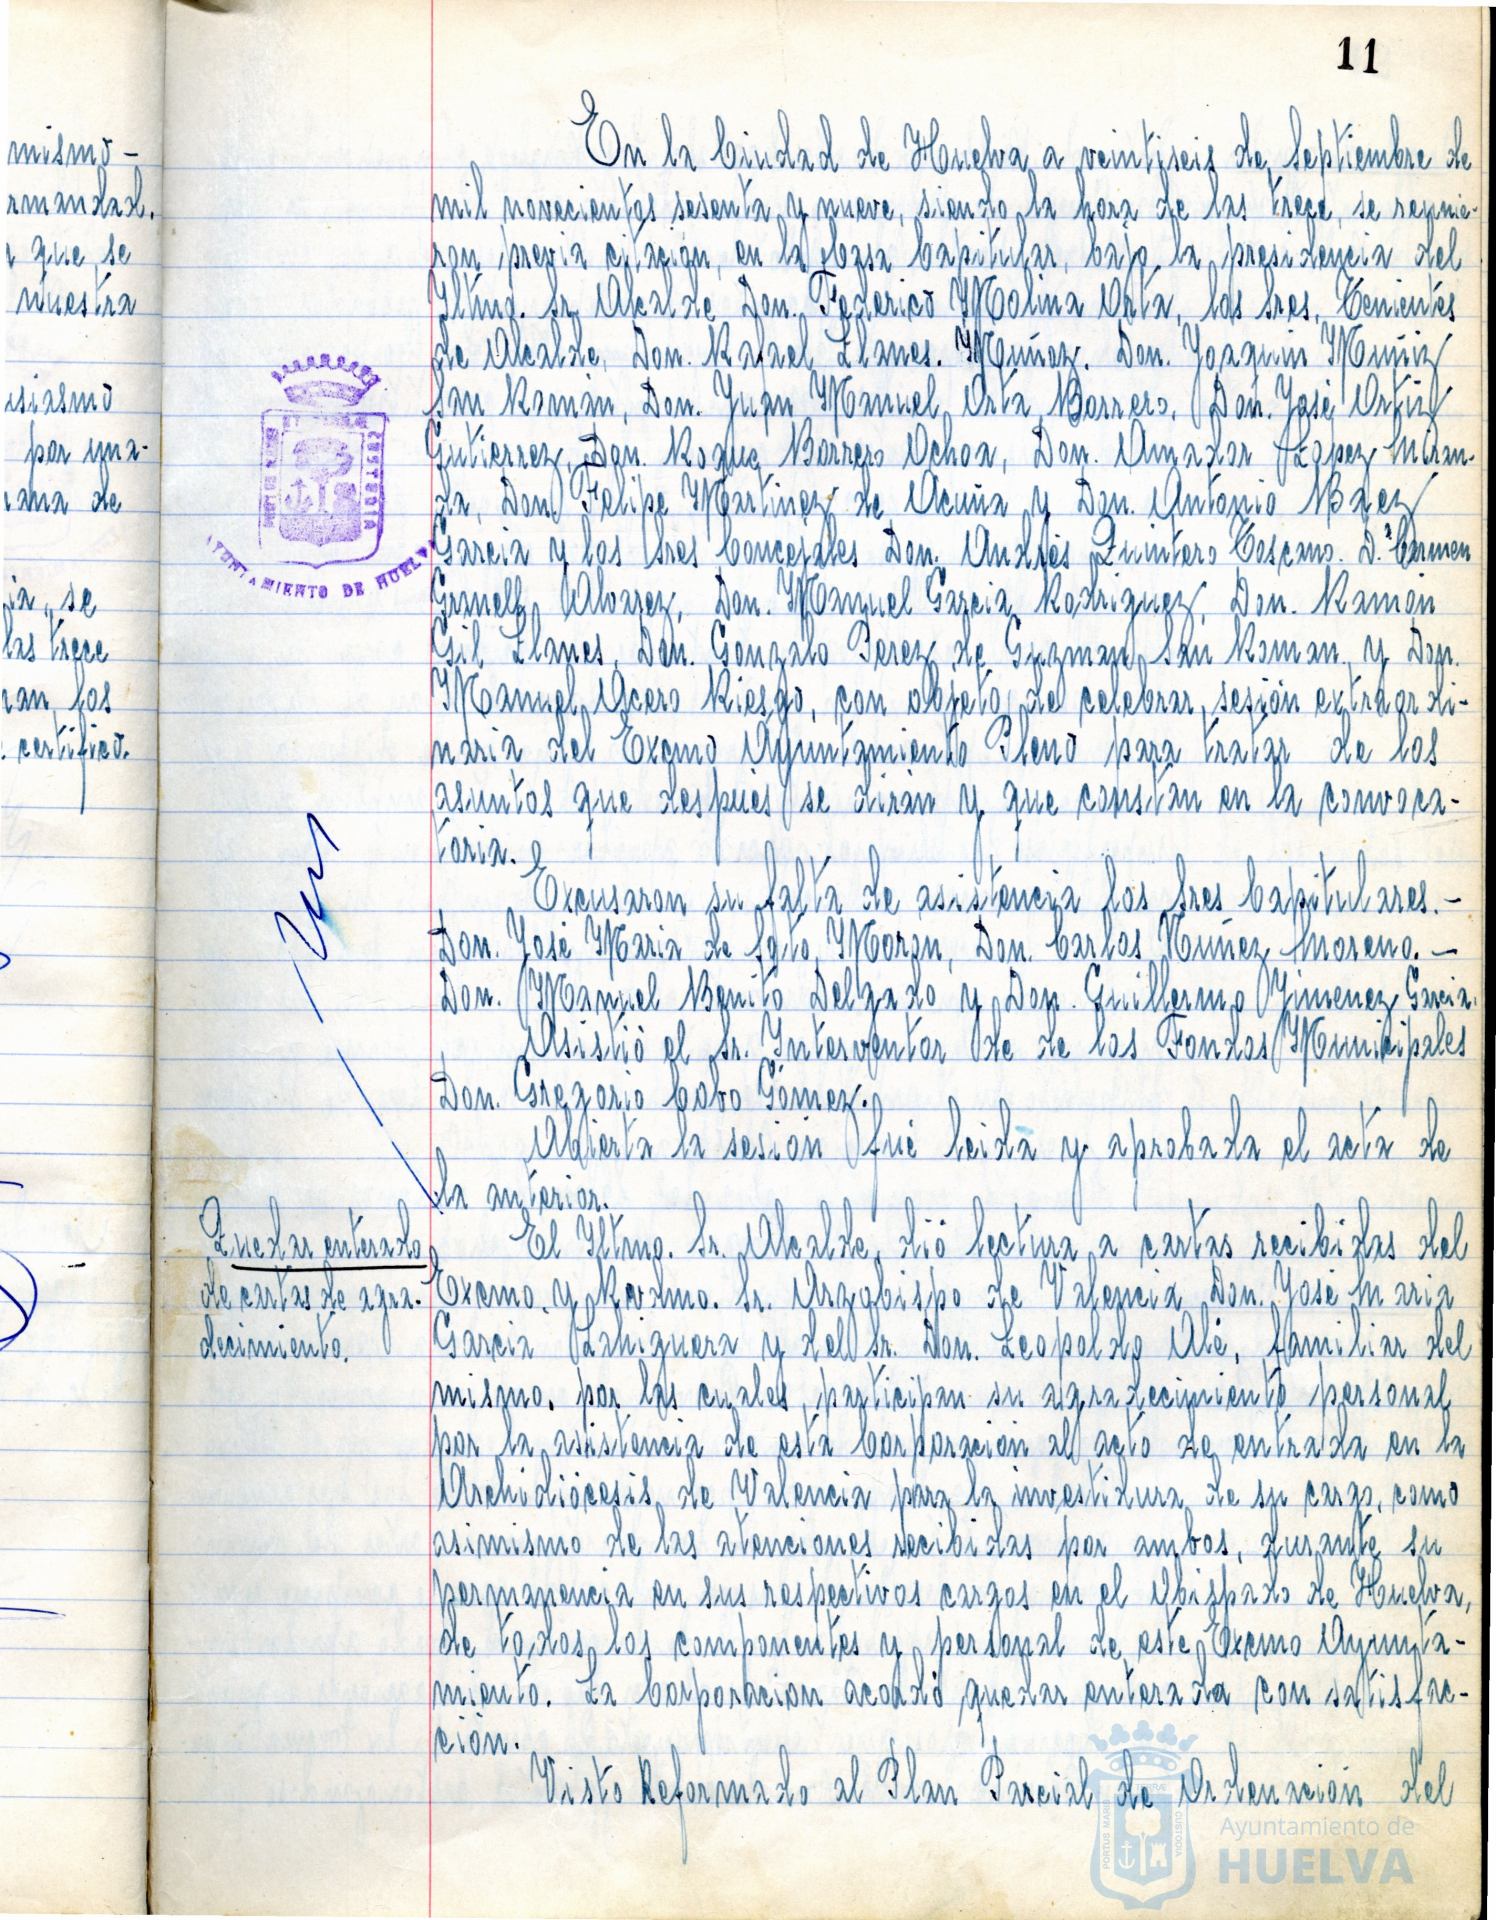 11
mismo -
rmandad.
que, se
nuestra
usiasmo
por una-
rana de
ia, se
las trece
ran, los
certifico.
En la Ciudad de Huelva a veintiseis de Septiembre de
mil novecientos sesenta y nueve, siendo la hora de las trece, se reunie-
ron previa citación, en la Casa Capitular, bajo la presidencia del
Iltmo. Sr. Alcalde Don. Federico Molina Orta, los Sres. Tenientes
de Alcalde, Don. Rafael Llanes. Muñoz. Don. Joaquin Muñiz
San Román, Don. Juan Manuel Orta Borrero, Don. José Ortiz
Gutierrez, Don. Roque Borrero Ochoa, Don. Amador López Miran-
da, Don Felipe Martinez de Acuña y Don. Antonio Baez
Garcia y los Sres Concejales Don. Andrés Quintero Toscano. D.ª Carmen
Granell Alvarez, Don. Manuel Garcia Rodriguez, Don. Ramón
Gil Llanes, Don. Gonzalo Perez de Guzman San Roman, y Don.
Manuel Acero Riesgo, con objeto de celebrar sesión extraordi-
naria del Excmo Ayuntamiento Pleno para tratar de los
asuntos que después se dirán y que constan en la convoca-
toria.
Excusaron su falta de asistencia los Sres Capitulares. -
Don. José Maria de Soto Moron, Don. Carlos Nuñez Moreno. -
Don. Manuel Benito Delgado y Don. Guillermo Jimenez Garcia.
Asistió el Sr. Interventor de de los Fondos Municipales
Don. Gregorio Cobo Gómez.
Abierta la sesión fué leida y aprobada el acta de
la anterior.
Quedar enterado
de cartas de agra-
decimiento.
El Iltmo. Sr. Alcalde, dió lectura a cartas recibidas del
Excmo. y Rvdmo. Sr. Arzobispo de Valencia Don. José Maria
Garcia Lahiguera y del Sr. Don. Leopoldo Alé, familiar del
mismo. por las cuales, participan su agradecimiento personal
por la asistencia de esta Corporación al acto de entrada en la
Archidiócesis de Valencia para la investidura de su cargo, como
asimismo de las atenciones recibidas por ambos, durante su
permanencia en sus respectivos cargos en el Obispado de Huelva,
de todos los componentes y personal de este Excmo Ayunta-
miento. La Corporacion acordó quedar enterada con satisfac-
ción.
Visto Reformado al Plan Parcial de Ordenación del
AYUNTAMIENTO DE HUELVA
PORTUS MARIS
CUSTODIA
Ayuntamiento de
HUELVA